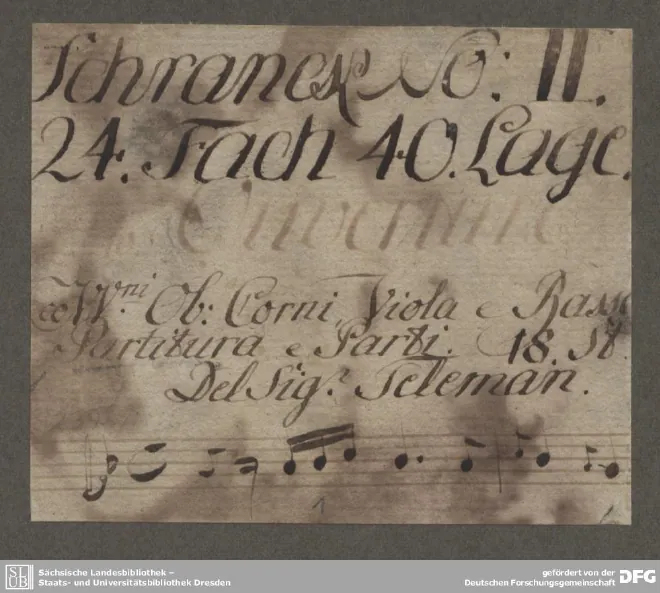 Schranck No: II.
24. Fach 40. Lage.
Ouverture
co VV.ni Ob: Corni, Viola e Basso
Partitura e Parti. 18. St.
Del Sig.r Teleman.
1
SLUB
Sächsische Landesbibliothek –
Staats- und Universitätsbibliothek Dresden
gefördert von der
Deutschen Forschungsgemeinschaft
DFG